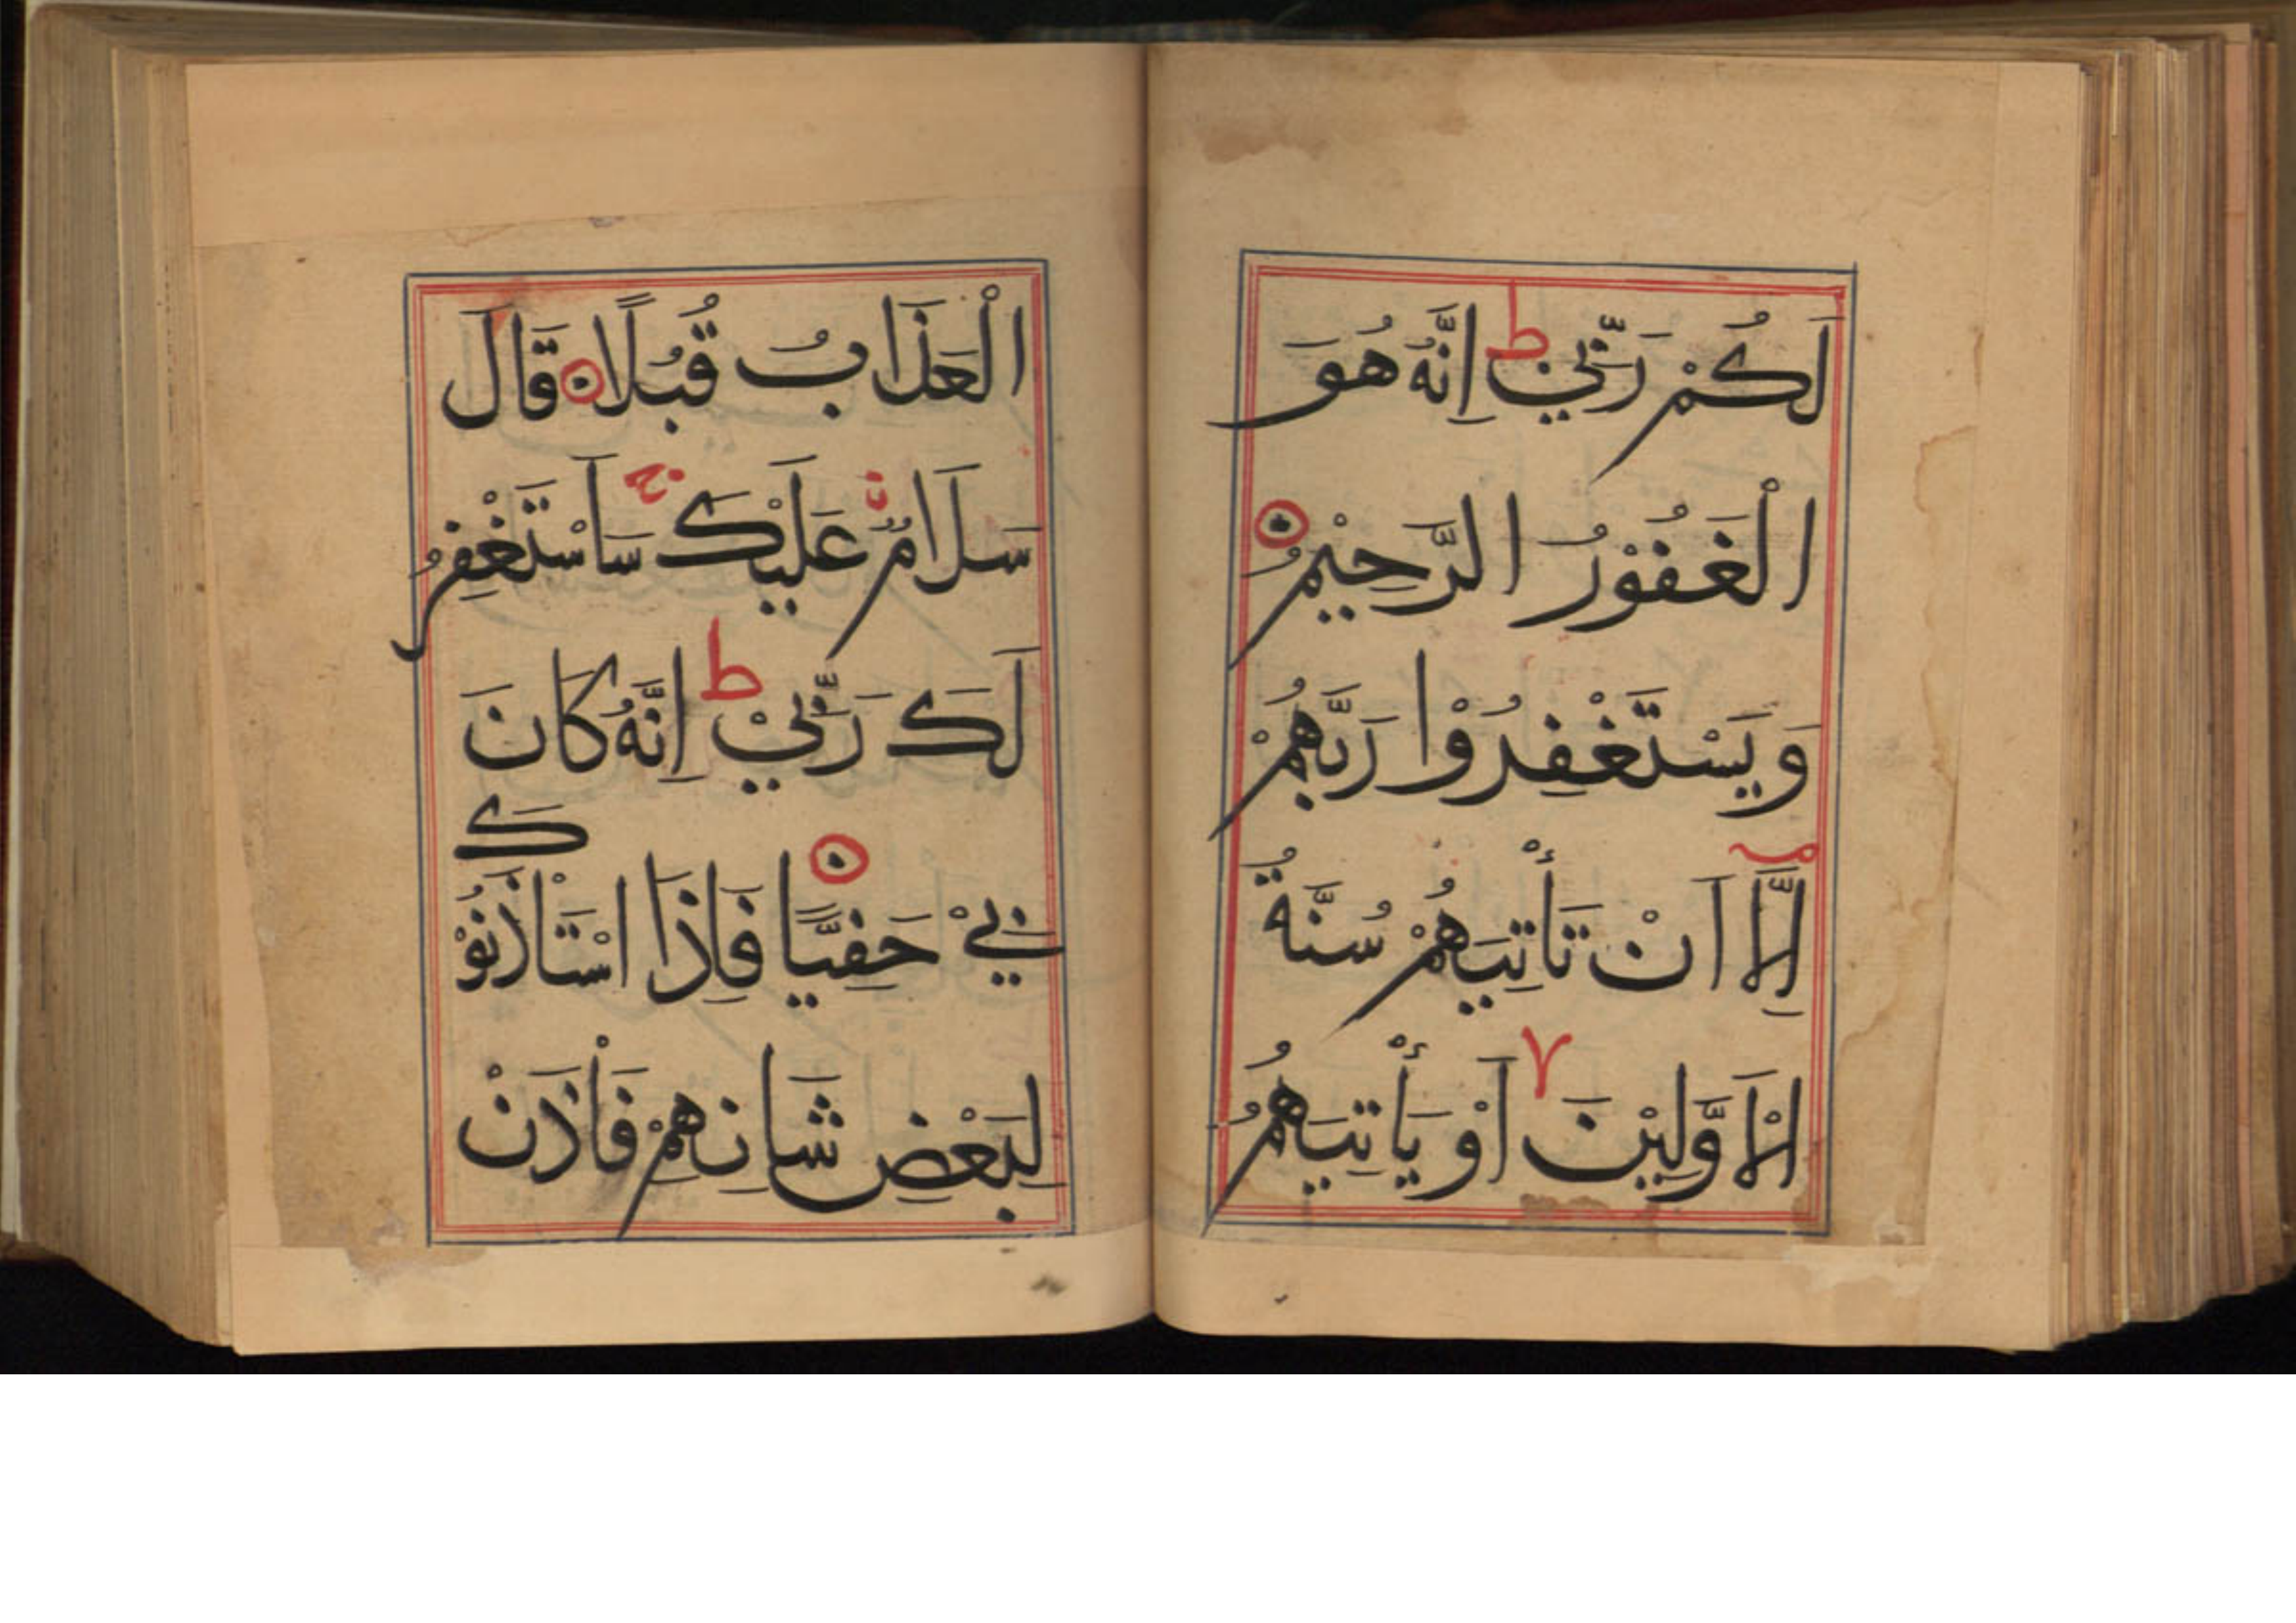 لَكُمْ رَبِّيْ ط اِنَّهُ هُوَ
الْغَفُوْرُ الرَّحِيْمُ
وَيَسْتَغْفِرُوْا رَبَّهُمْ
اِلَّا اَنْ تَأْتِيَهُمْ سُنَّةُ
الْاَوَّلِيْنَ ٧ اَوْ يَأْتِيَهُمُ
الْعَذَابُ قُبُلًا قَالَ
سَلَامٌ عَلَيْكَ ج سَاَسْتَغْفِرُ
لَكَ رَبِّيْ ط اِنَّهُ كَانَ
بِيْ حَفِيًّا فَاِذَا اسْتَاْذَنُوْكَ
لِبَعْضِ شَانِهِمْ فَاْذَنْ